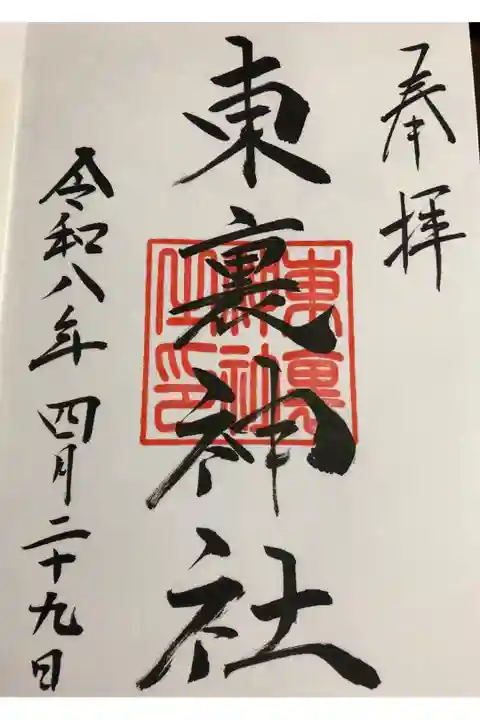 奉拝
東裏神社
東裏
神社
之印
令和八年四月二十九日